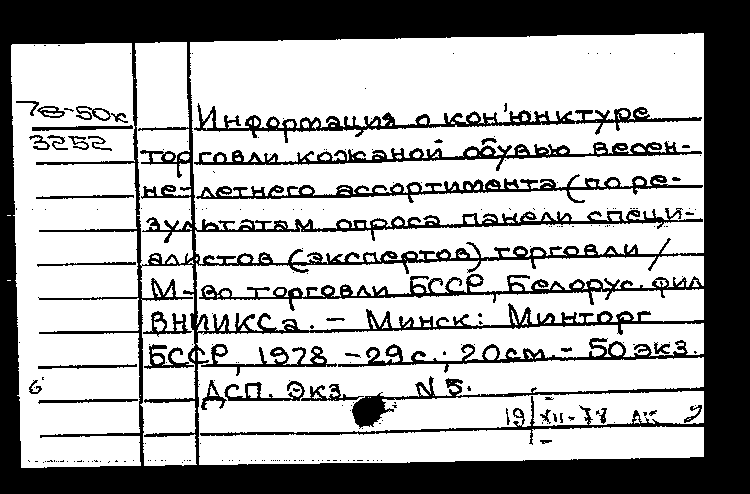 78-50к
3252
Информация о кон'юнктуре
торговли кожаной обувью весен-
не-летнего ассортимента (по ре-
зультатам опроса панели специ-
алистов (экспертов) торговли /
М-во торговли БССР, Белорус. фил
ВНИИКСа. – Минск: Минторг
БССР, 1978 – 29 с.; 20 см. – 50 экз.
6
ДСП. Экз. N 5.
19/XII-78 АК